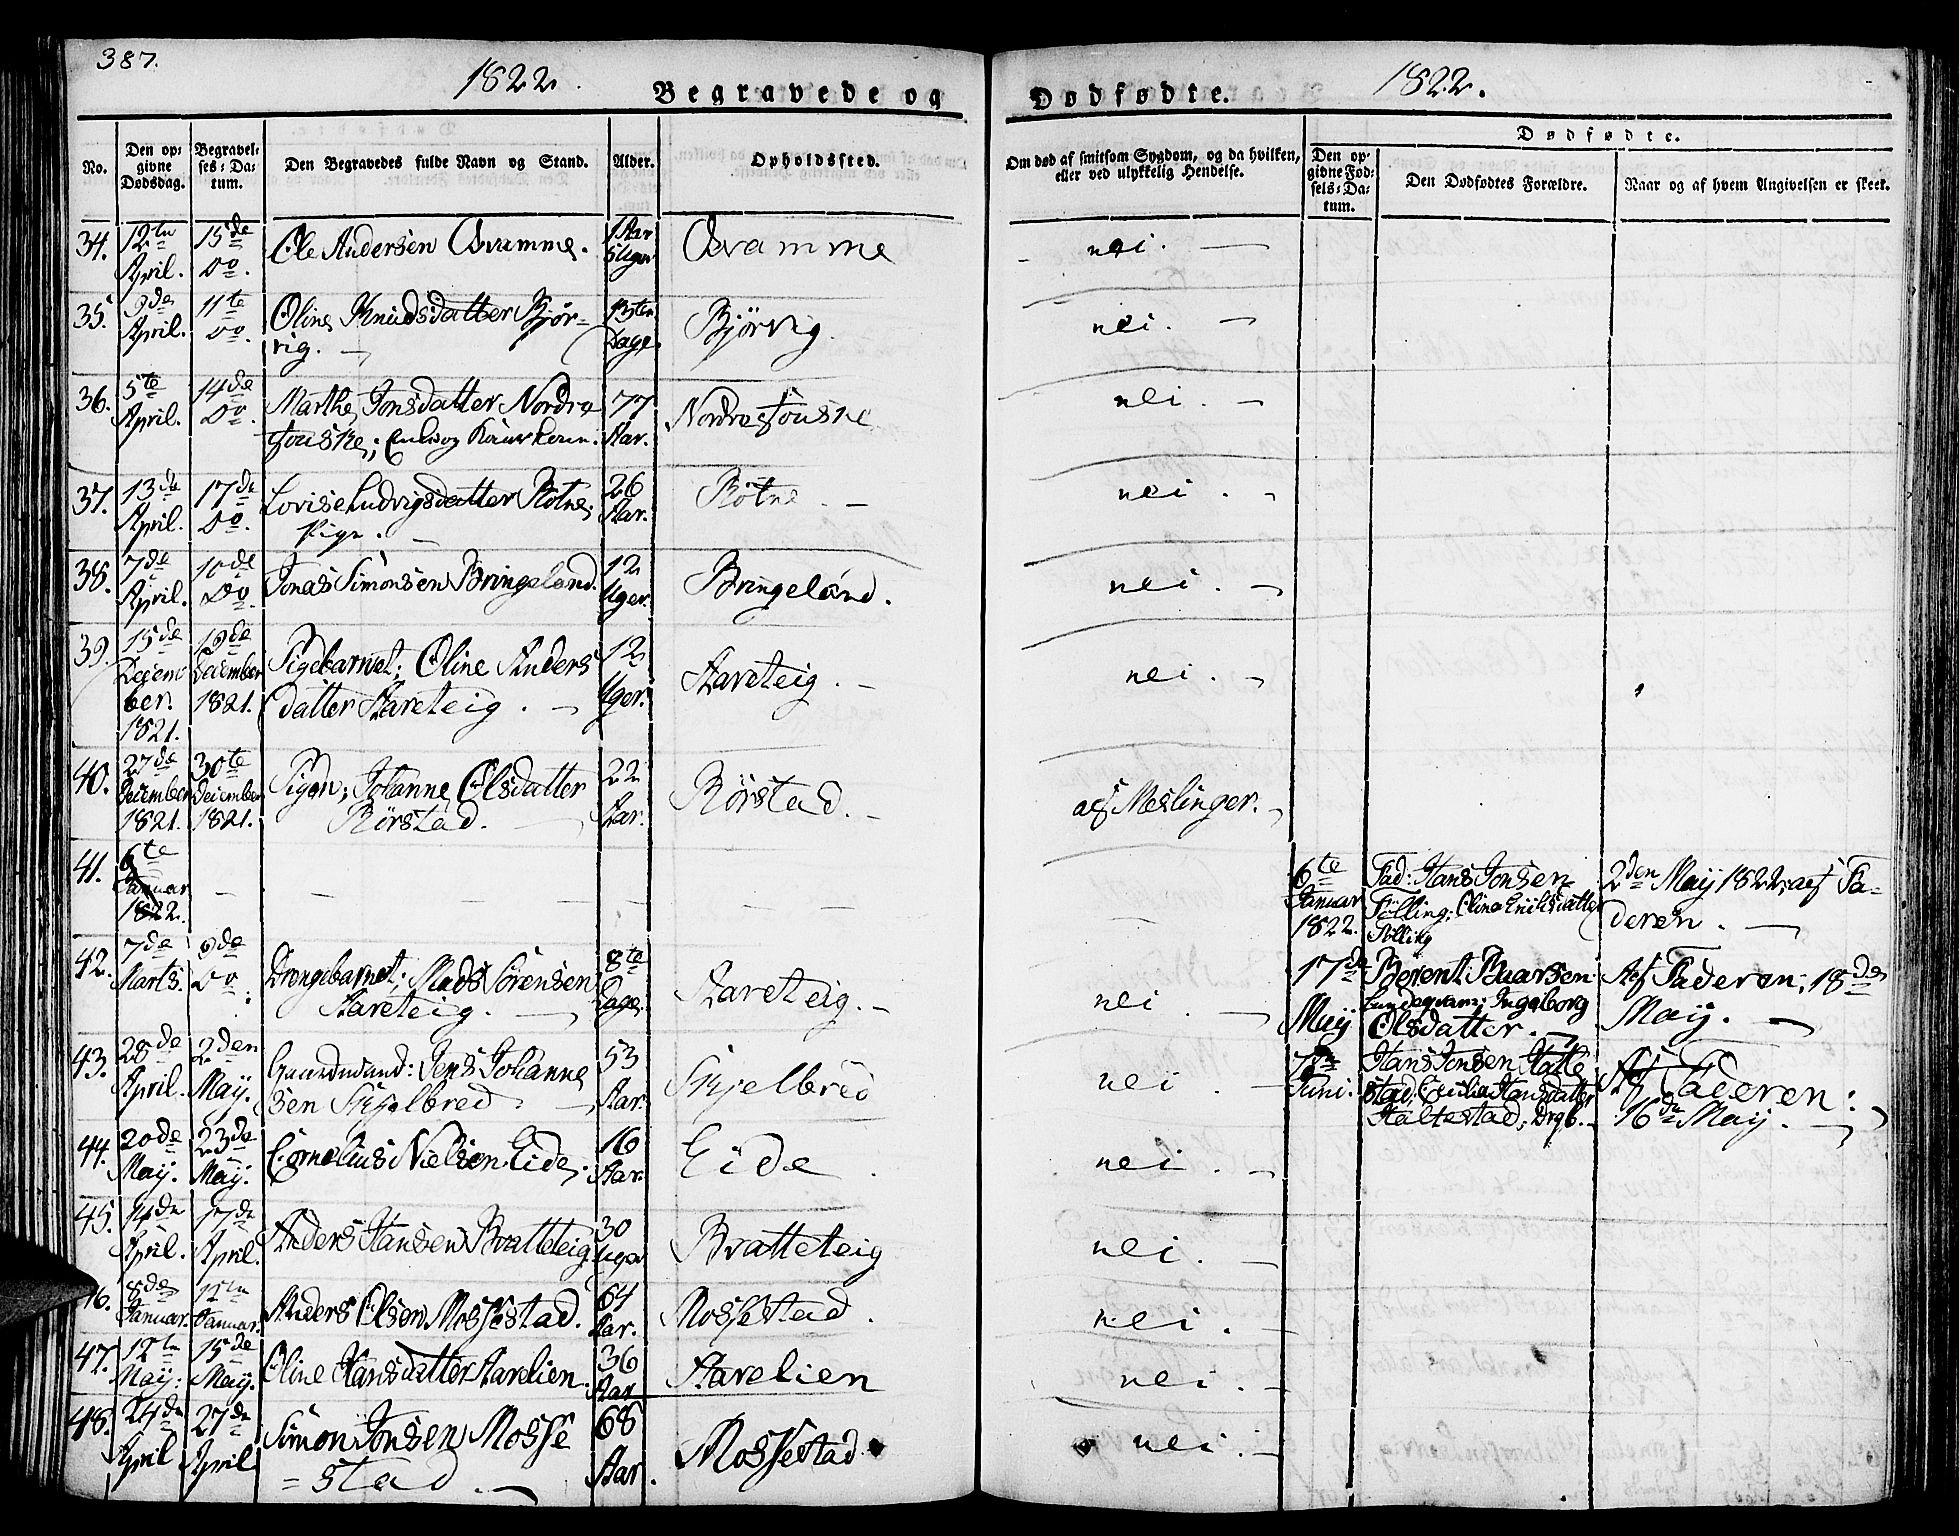 387.
1822.
Begravede og
No.
Den op-
givne
Dødsdag.
Begravel-
ses-Da-
tum.
Den Begravedes fulde Navn og Stand.
Alder.
Opholdssted.
34. 12te April. 15de Do. Ole Andersen 1 Aar 5 Uger
35. 9de April. 11te Do. Oline Knudsdatter Bjør-
vig. 13ten Dage. Bjørvig.
36. 5te April. 14de Do. Marthe Jonsdatter Nordre
77 Aar.
37. 13de April. 17de Do. Lovise Ludvigsdatter Røtne,
Pige. 26 Aar. Røtne
38. 7de April. 10de Do. Jonas Simonsen Bringeland. 12 Uger. Bringeland.
39. 15de Decem
ber. 1821. 19de December 1821. Pigebarnet; Oline Anders
datter Aareteig. 12 Uger. Aareteig.
40. 27de December 1821. 30te December 1821. Pigen; Johanne Olsdatter
Rørstad. 22 Aar. Rørstad.
41. 6te Januar 1822. — — — —
42. 7de Marts. 9de Do. Drengebarnet; Mads Sørensen
Aareteig. 8te Dage. Aareteig.
43. 28de April. 2den May. Gaardmand: Jens Johanne
sen Skjelbred. 53 Aar. Skjelbred
44. 20de May. 23de May. Cornelius Nielsen Eide. 16 Aar. Eide.
45. 14de April. 17de April. Anders Hansen Bratteteig 30 Uger Bratteteig
46. 8de Januar. Januar. Anders Olsen Mossestad. 64 Aar. Mossestad.
47. 12te May. 15de May. Oline Hansdatter Aarelien. 36 Aar Aarelien
48. 24de April 27de April Simon Jonsen Mosse
=stad. 68 Aar. Mossestad
Dødfødte.
1822.
Om død af smitsom Sygdom, og da hvilken,
eller ved ulykkelig Hendelse.
Dødfødte.
Den op-
givne Fød-
sels-Da-
tum.
Den Dødfødtes Forældre.
Naar og af hvem Angivelsen er skeet.
nei. —
nei. —
nei. —
nei. —
nei. —
nei. —
af Meslinger. —
6te Januar 1822. Fad: Hans Jonsen
Følling; Oline Eriksdatter
Følling 2den May 1822, af Fa-
deren. —
nei. — 17de May Berent
Ingeborg
Olsdatter. — Af Faderen; 18de
May. —
nei. — Juni. Hans Jonsen Halle
stad, Cecilia Hansdatter
Drgb. Af Faderen:
16de May. —
nei. —
nei. —
nei. —
nei. —
nei. —